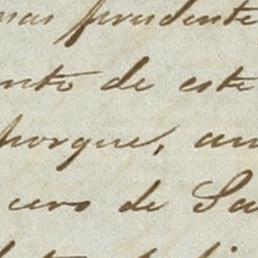 mas prudente
nto de este
porque, au
cero de Sa